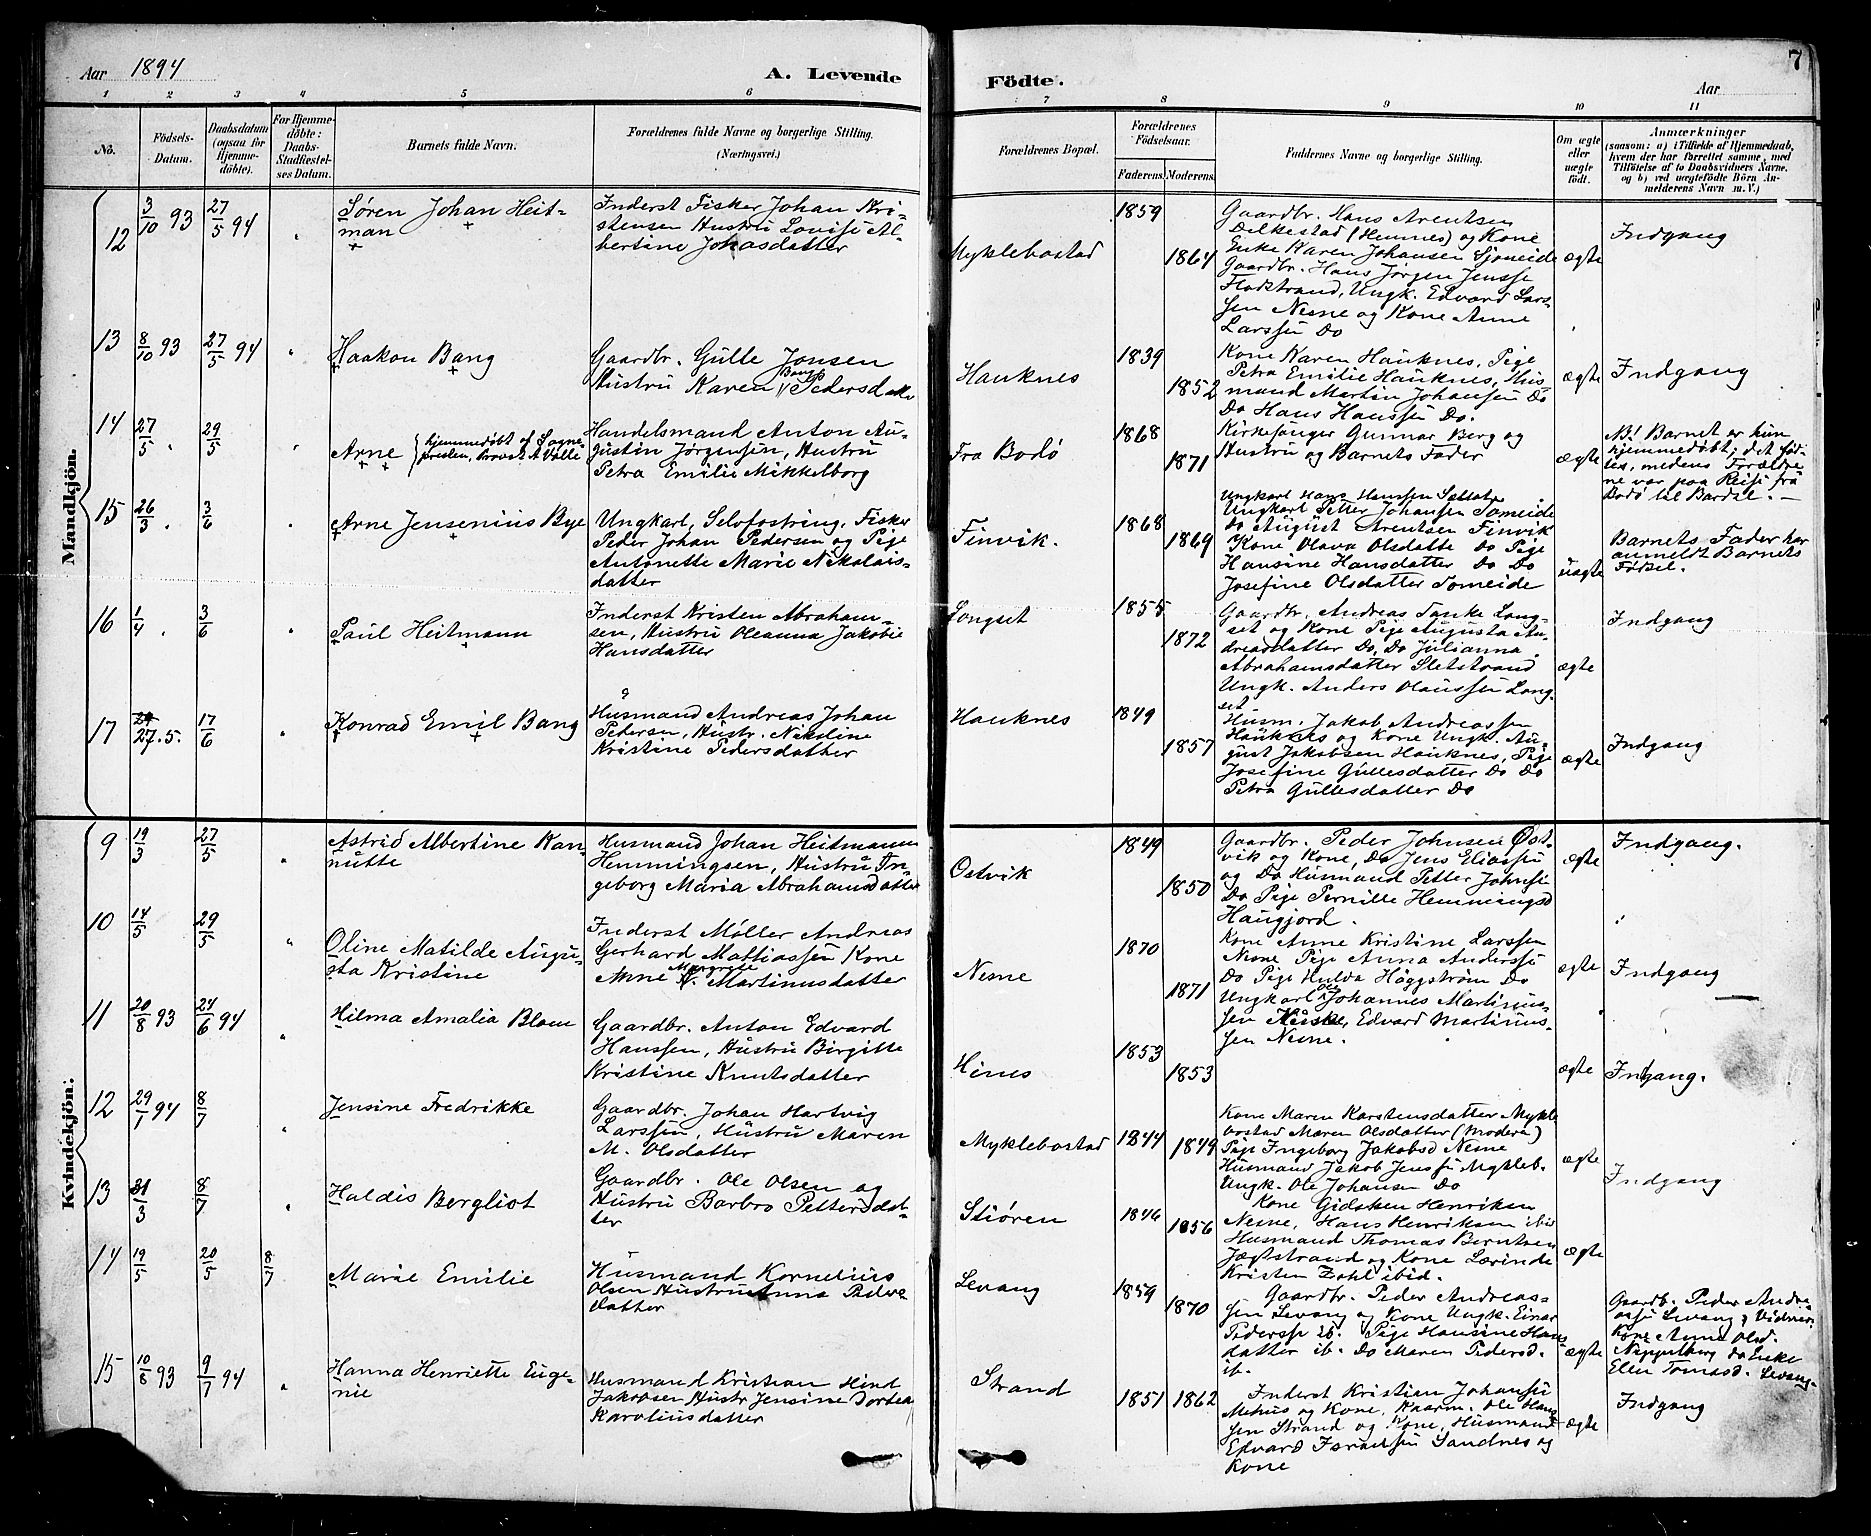 Aar 1894
A. Levende
Födte.
Aar
7
1 2 3 4 5 6 7 8 9 10 11
No.
Födsels-
Datum.
Daabsdatum
(ogsaa for
Hjemme-
döbte).
For Hjemme-
döbte:
Daabs-
Stadfæstel-
ses Datum.
Barnets fulde Navn.
Forældrenes fulde Navne og borgerlige Stilling.
(Næringsvei.)
Forældrenes Bopæl.
Forældrenes
Födselsaar.
Faderens. Moderens.
Faddernes Navne og borgerlige Stilling.
Om ægte
eller
uægte
födt.
Anmærkninger
(saasom: a) i Tilfælde af Hjemmedaab,
hvem der har forrettet samme, med
Tilföielse af to Daabsvidners Navne,
og b) ved uægtefödte Börn An-
melderens Navn m. V.)
Mandkjön.
12
3/10 93
27/5 94
Søren Johan Heit-
man
Inderst Fisker Johan Kri-
stensen Hustru Lovise Al-
bertine Johasdatter
Myklebostad
1859
1864
Gaardbr. Hans Arentsen
Dilkestad (Hemnes) og Kone
Enke Karen Johansen Sjoneide
Gaardbr. Hans Jørgen Jensse
Flodstrand, Ungk. Edvard Lars-
sen Nesne og Kone Anne
Larssen Do
ægte
Indgang
13
8/10 93
27/5 94
Haakon Bang
Gaardbr. Gulle Jonsen
Hustru Karen Bangs Pedersdatter
Hauknes
1839
1852
Kone Karen Hauknes, Pige
Petra Emilie Hauknes, Hus-
mand Martin Johansen Do
Do Hans Hanssen Do.
ægte
Indgang
14
27/5
29/5
Arne hjemmedøbt af Sogne-
presten, Provst A Valle
Handelsmand Anton Au-
gustin Jørgensen, Hustru
Petra Emilie Mikkelborg
Fra Bodø
1868
1871
Kirkesanger Gunnar Berg og
Hustru og Barnets Fader
ægte
NB! Barnet er kun
hjemmedøbt; det fød-
tes, medens Forældre
ne var paa Reise fra
Bodø til Bardal. —
15
26/3
3/6
Arne Jensenius Bye
Ungkarl, Selvfostring, Fisker
Peder Johan Pedersen og Pige
Antonette Marie Nikolais-
datter
Finvik.
1868
1869
Ungkarl Hans Hanssen
Ungkarl Petter Johansen Someide
Do August Arentsen Finvik
Kone Olava Olsdatte Do Pige
Hansine Hansdatter Do Do
Josefine Olsdatter Someide
uægte
Barnets Fader har
anmeldt Barnets
Fødsel.
16
1/4
3/6
Paul Heitmann
Inderst Kristen Abraham-
sen, Hustru Oleanna Jakobie
Hansdatter
Longset
1855
1872
Gaardbr. Andreas Tanke Lang-
set og Kone Pige Augusta An-
dreasdatter Do, Do Julianna
Abrahamsdatter Sletstrand
Ungk. Anders Olaussen Lang-
set
ægte
Indgang
17
27.5.
17/6
Konrad Emil Bang
Husmand Andreas Johan
Pedersen, Hustr. Nikoline
Kristine Pedersdather
Hauknes
1849
1857
Husm. Jakob Andreassen
Hauknes og Kone Ungk. Au-
gust Jakobsen Hauknes, Pige
Josefine Gullesdatter Do Do
Petra Gullesdatter Do
ægte
Indgang
Kvindekjön:
9
19/3
27/5
Astrid Albertine Kan-
nutte
Husmand Johan Heitmann
Hemmingsen, Hustru In-
geborg Maria Abrahamsdatter
Ostvik
1849
1850
Gaardbr. Peder Johnsen Øst-
vik og Kone, Do Jens Eliassen
og Do Husmand Petter Johnsen
Do Pige Pernille Hemmingsd
Haugjord.
ægte
Indgang.
10
14/5
29/5
Oline Matilde Augu-
sta Kristine
Inderst Møller Andreas
Gerhard Mattiassen Kone
Anne Margrete Martinusdatter
Nesne
1870
1871
Kone Anne Kristine Larssen
Nesne Pige Anna Anderssen
Do Pige Hulda Häggstrøm Do
Ungkarl Ole Johannes Martinus-
sen Edvard Martinus-
sen Nesne.
ægte
Indgang
11
20/8 93
24/6 94
Hilma Amalia Blom
Gaardbr. Anton Edvard
Hanssen, Hustru Birgitte
Kristine Knutsdatter
Hines
1853
1853
ægte
Indgang.
12
29/1 94
8/7
Jensine Fredrikke
Gaardbr. Johan Hartvig
Larssen, Hustru Maren
M. Olsdatter
Myklebostad
1844
1849
Kone Maren Karstensdatter Mykle
bostad Maren Olsdatter (Modern)
Pige Ingeborg Jakobsd Nesne
Husmand Jakob Jenssen Mykleb.
Ungk. Ole Johansen Do
ægte
Indgang
13
31/3
8/7
Haldis Bergliot
Gaardbr. Ole Olsen og
Hustru Barbro Pettersdat-
ter
Stiøren
1846
1856
Kone Gidsken Henriksen
Nesne, Hans Henriksen ibid
Husmand Thomas Berntsen
Jægtstrand og Kone Lovinde
Kristen Zahl ibid.
ægte
14
19/5
20/5
8/7
Marie Emilie
Husmand Kornelius
Olsen Hustru Anna Peders-
datter
Levang
1859
1870
Gaardbr. Peder Andreas-
sen Levang og Kone Ungk. Einar
Pederssen ib. Pige Hansine Hans
datter ib. Do Maren Pedersd.
ib.
ægte
Gaardb. Peder Andre-
assen Levang, Vidner:
Kone Anne Olsd.
do Enke
Ellen Tomasd. Levang
15
10/8 93
9/7 94
Hanna Henriette Euge-
nie
Husmand Kristian Hind
Jakobsen Hustr Jensine Dortea
Karoliusdatter
Strand
1851
1862
Inderst Kristian Johansen
Mehus og Kone, Kaarm. Ole Hans
sen Strand og Kone, Husmand
Edvard Israelsen Sandnes og
Kone
ægte
Indgang